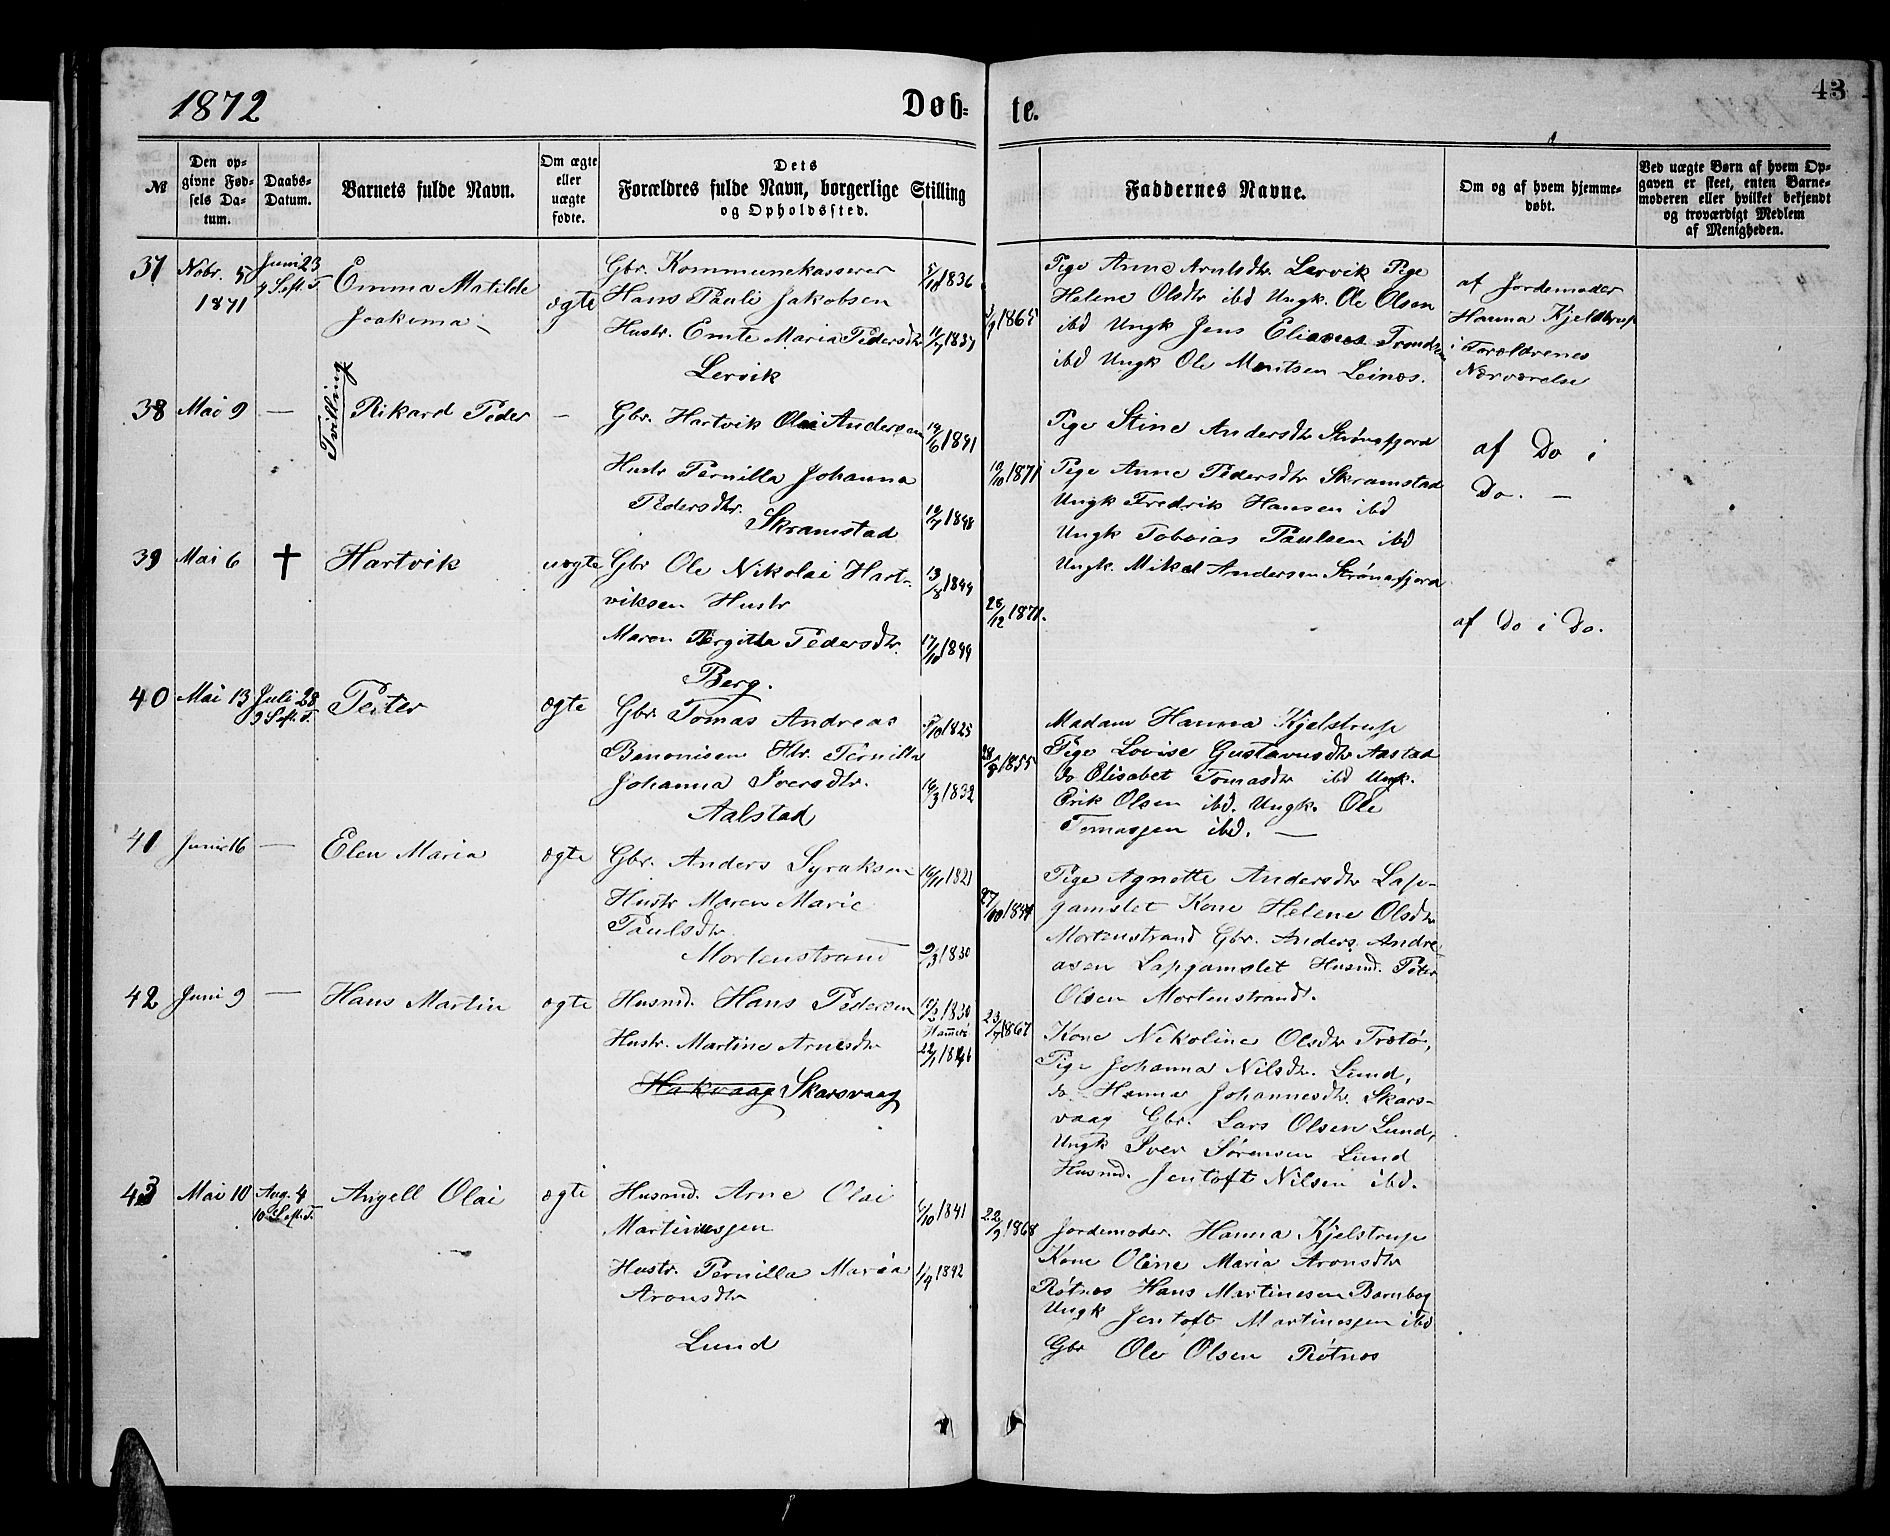 1872
Døb-
te.
43
№
Den op-
givne Fød-
sels Da-
tum.
Daabs-
Datum.
Barnets fulde Navn.
Om ægte
eller
uægte
fødte.
Dets
Forældres fulde Navn, borgerlige Stilling
og Opholdssted.
Faddernes Navne.
Om og af hvem hjemme-
døbt.
Ved uægte Børn af hvem Op-
gaven er skeet, enten Barne-
moderen eller hvilket bekjendt
og troværdigt Medlem
af Menigheden.
37
Nobr. 5
1871
Juni 23
4 S.eft. T.
Emma Matilde
Joakima
ægte
Gbr. Kommunekasserer
Hans Pauli Jakobsen
Hustr. Emte Maria Pedersdtr
Lervik
5/10 1836
1837
1865
Pige Anne Arntsdtr. Lervik Pige
Helene Olsdtr ibd Ungk. Ole Olsen
ibd Ungk Jens Elianus Trondsen
ibd Ungk Ole Montsen Leinæs.
af Jordemoder
Hanna Kjeldtrup
i Forældrenes
Nærværelse
38
Mai 9
—
Tvilling
Rikard Peder
—
Gbr. Hartvik Olai Andersen
Hustr Pernilla Johanna
Pedersdtr.
Skramstad
19/6 1841
1848
19/10 1871
Pige Stine Andersdtr Strønafjord
Pige Anne Pedersdtr Skramstad
Ungk Fredrik Hansen ibd
Ungk Tobias Paulsen ibd
Ungk. Mikal Andersen Strønafjord
af Do i
Do. —
39
Mai 6
†
Hartvik
uægte
Gbr Ole Nikolai Hart-
viksen Hustr
Maren Bergitta Pedersdtr.
Berg.
13/8 1844
17/10 1849
28/12 1871.
af Do i Do.
40
Mai 13
Juli 28
9 S.eft. T.
Peter
ægte
Gbr Tomas Andreas
Benonisen Htr. Pernilla
Johanna Iversdtr.
Aalstad
1825
16/3 1832
28/8 1855
Madam Hanna Kjelstrup
Pige Lovise Gustavusdtr Aastad
do Elisabet Tomasdtr ibd Ungk.
Erik Olsen ibd. Ungk. Ole
Tomassen ibd. —
41
Juni 16
—
Elen Maria
ægte
Gbr. Anders Syraksen
Hustr Maren Marie
Paulsdtr.
Mortenstrand
16/11 1821
9/3 1830
27/10
Pige Agnette Andersdtr Lap-
gamslet Kone Helene Olsdtr
Mortenstrand Gbr. Anders Andre-
asen Lapgamslet Husmd. Peter
Olsen Mortenstrand.
42
Juni 9
—
Hans Martin
ægte
Husmd. Hans Pedersen
Hustr. Martine Arnesdtr
Hakvaag Skarsvaag
1830
Hammerø
23/7 1867
Kone Nikoline Olsdtr Trætø,
Pige Johanna Nilsdtr. Lund,
do. Hanna Johannesdtr. Skars-
vaag Gbr. Lars Olsen Lund,
Ungk Iver Sørensen Lund
Husmd. Jentoft Nilsen ibd.
43
Mai 10
Aug. 4
10 S.eft. T.
Angell Olai
ægte
Husmd. Arne Olai
Martinussen
Hustr. Pernilla Maria
Aronsdtr
Lund
6/10 1841
1/9 1842
22/9 1868
Jordemoder. Hanna Kjelstrup
Kone Oline Maria Aronsdtr
Røtnes Hans Martinesen Bornbog
Ungk Jentoft Martinessen ibd
Gbr Ole Olsen Røtnæs